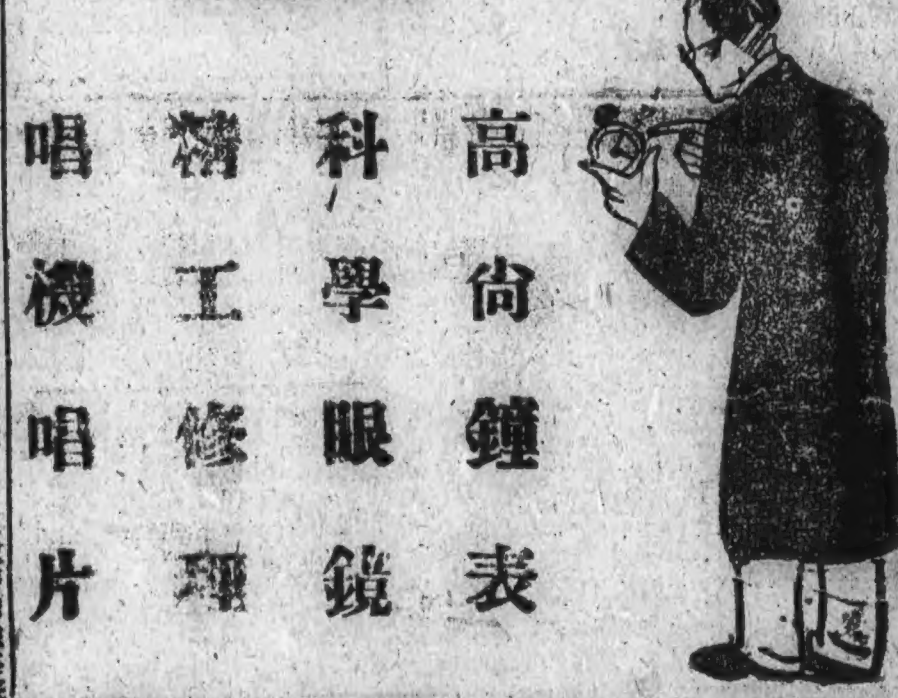 高尚鐘表
科學眼鏡
精工修理
唱機唱片